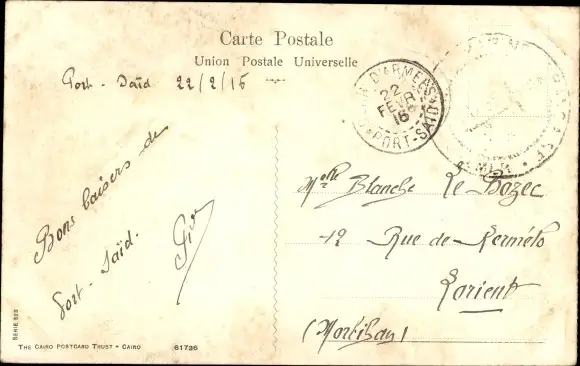 Carte Postale
Union Postale Universelle
Port-Saïd 22/2/16
D'ARMÉES
22
FEVR
16
PORT-SAÏD
Bons baisers de
Port-Saïd.
Melle Blanche Le Bozec
12 Rue de Kermélo
Lorient
(Morbihan)
SERIE 523
THE CAIRO POSTCARD TRUST • CAIRO 61736